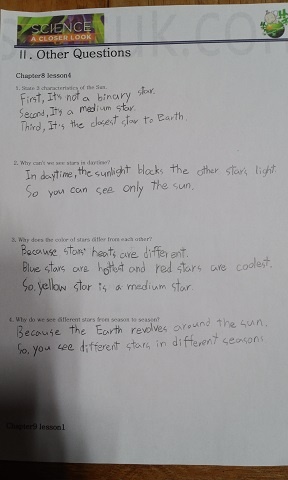 SCIENCE
A CLOSER LOOK
II. Other Questions
Chapter8 lesson4
1. State 3 characteristics of the Sun.
First, It's not a binary star.
Second, It's a medium star.
Third, It's the closest star to Earth.
2. Why can't we see stars in daytime?
In daytime, the sunlight blocks the other stars light.
So you can see only the sun.
3. Why does the color of stars differ from each other?
Because stars' heats are different.
Blue stars are hottest and red stars are coolest.
So, yellow star is a medium star.
4. Why do we see different stars from season to season?
Because the Earth revolves around the sun.
So, you see different stars in different seasons.
Chapter9 lesson1